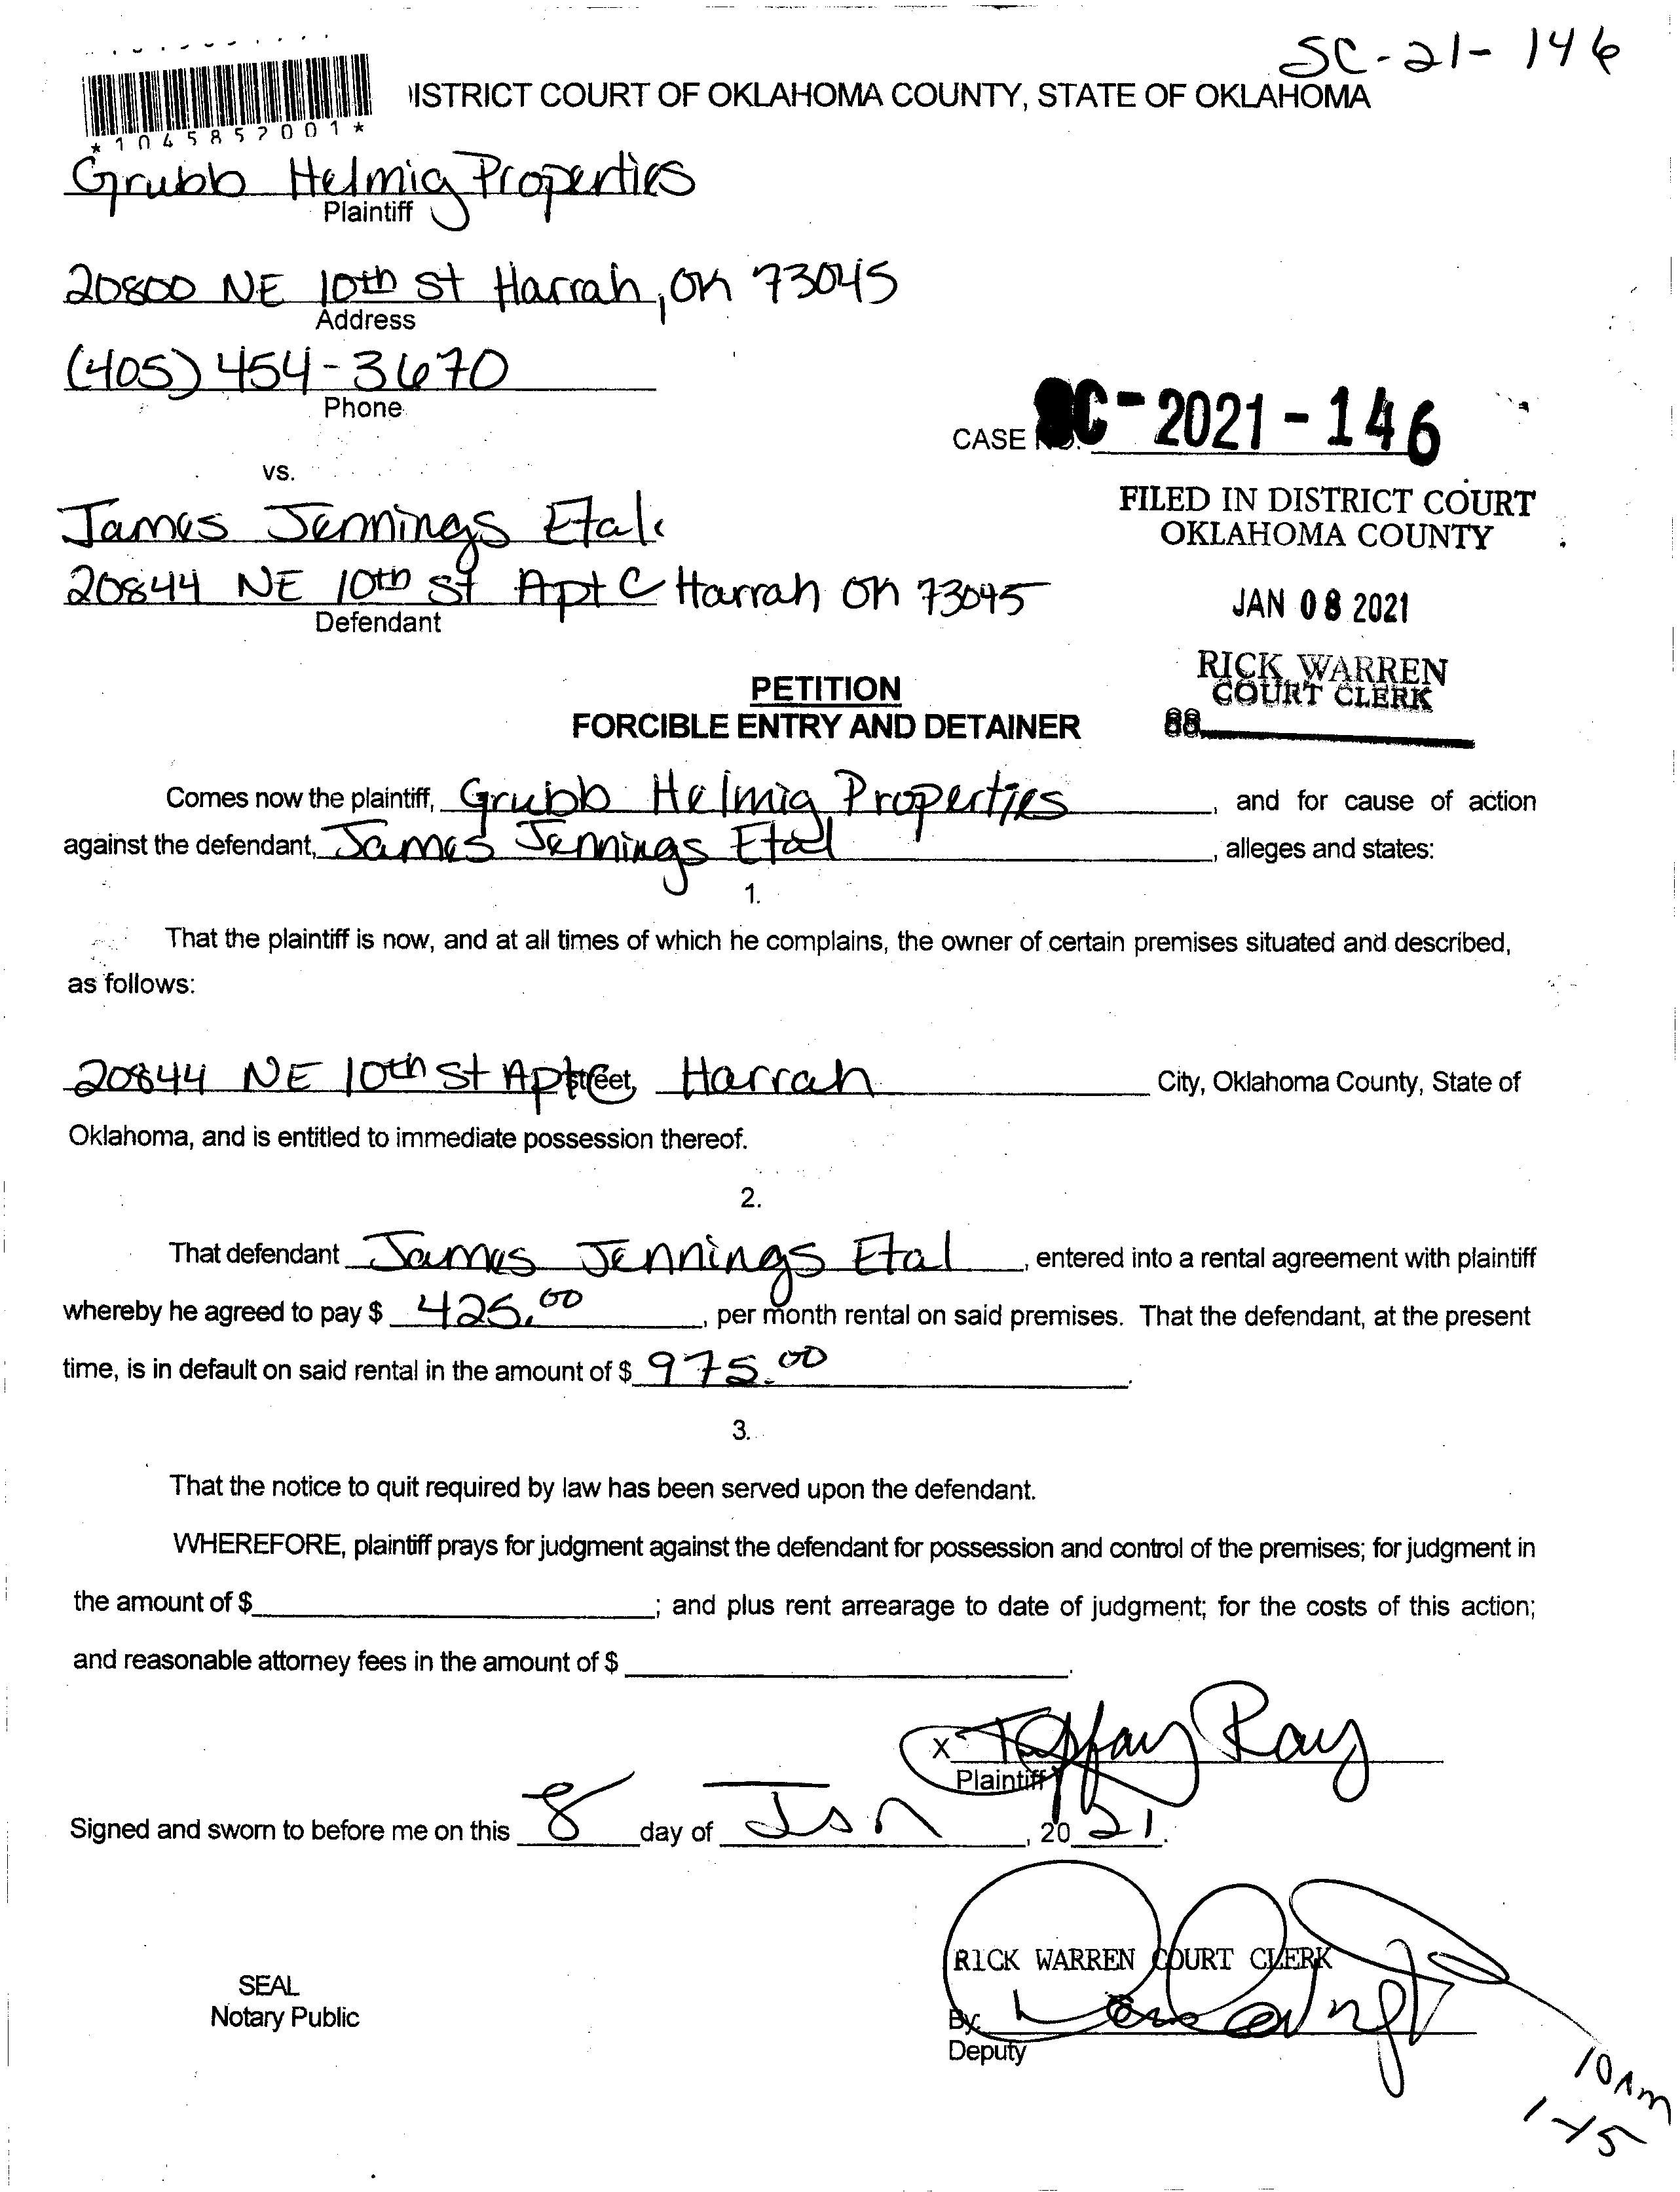 SC-21-146
ISTRICT COURT OF OKLAHOMA COUNTY, STATE OF OKLAHOMA
*1045857001*
Grubb Helmig Properties
Plaintiff
20800 NE 10th St Harrah, OK 73045
Address
(405) 454-3670
Phone
CASE NO. SC-2021-146
vs.
FILED IN DISTRICT COURT
OKLAHOMA COUNTY
James Jennings Etal.
20844 NE 10th St Apt C Harrah OK 73045
Defendant
JAN 08 2021
RICK WARREN
COURT CLERK
88
PETITION
FORCIBLE ENTRY AND DETAINER
Comes now the plaintiff, Grubb Helmig Properties, and for cause of action
against the defendant, James Jennings Etal, alleges and states:
1.
That the plaintiff is now, and at all times of which he complains, the owner of certain premises situated and described,
as follows:
20844 NE 10th St Apt C Street, Harrah City, Oklahoma County, State of
Oklahoma, and is entitled to immediate possession thereof.
2.
That defendant James Jennings Etal, entered into a rental agreement with plaintiff
whereby he agreed to pay $ 425.00, per month rental on said premises. That the defendant, at the present
time, is in default on said rental in the amount of $ 975.00.
3.
That the notice to quit required by law has been served upon the defendant.
WHEREFORE, plaintiff prays for judgment against the defendant for possession and control of the premises; for judgment in
the amount of $ ; and plus rent arrearage to date of judgment; for the costs of this action;
and reasonable attorney fees in the amount of $ .
X Ray
Plaintiff
Signed and sworn to before me on this 8 day of Jan, 2021.
RICK WARREN COURT CLERK
SEAL
Notary Public
By:
Deputy
10 Am
1-15